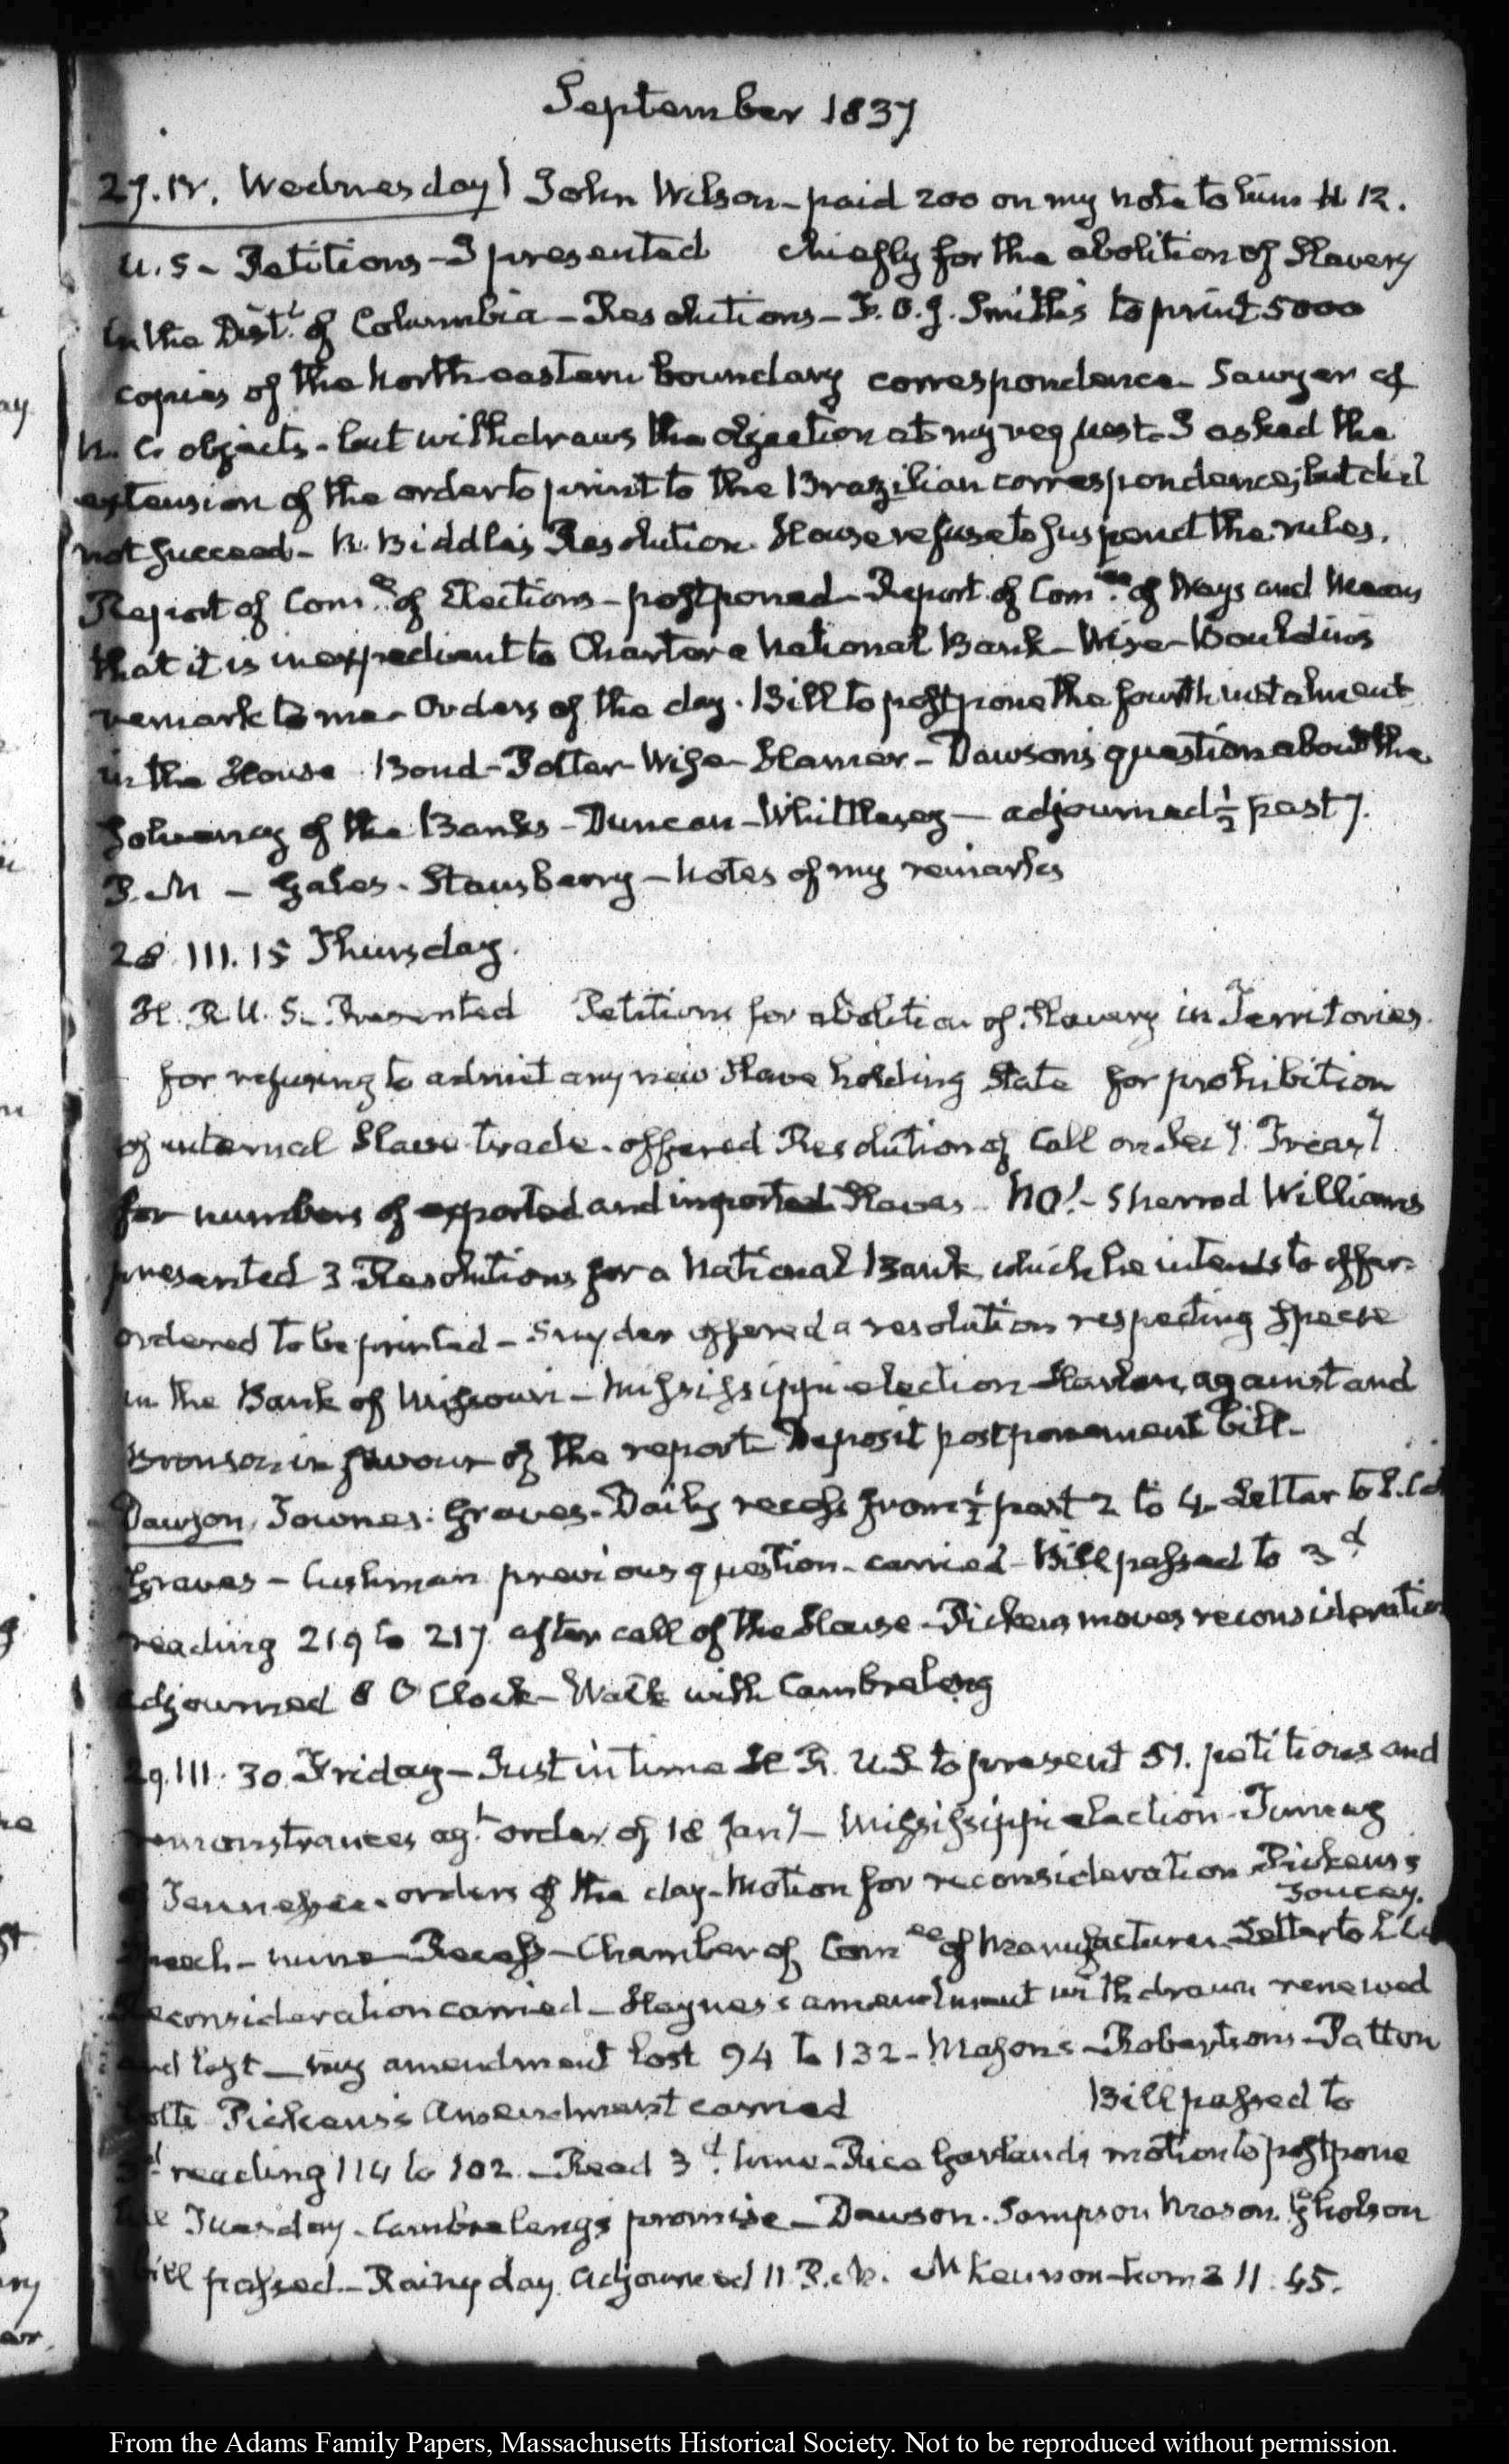 September 1837
27. IV. Wednesday John Wilson - paid 200 on my note to him H R.
U. S - Petitions - I presented chiefly for the abolition of Slavery
in the Dist.t of Columbia - Resolutions - F. O. J. Smith's to print 5000
copies of the North eastern boundary correspondence - Sawyer of
N. C. objects - but withdraws the objection at my request - I asked the
extension of the order to print to the Brazilian correspondence; but did
not succeed - R. Biddle's Resolution. House refuse to suspend the rules.
Report of Com.ee of Elections - postponed - Report of Com.ee of Ways and Means
that it is inexpedient to Charter a National Bank - Wise - Bouldin's
remark to me - Orders of the day. Bill to postpone the fourth instalment
in the House. Bond - Potter - Wise - Hamer - Dawson's question about the
solvency of the Banks - Duncan - Whittlesey - adjourned ½ past 7.
P. M - Gales - Stansberry - Notes of my remarks
28 III. 15 Thursday.
H. R. U. S. Presented Petitions for abolition of Slavery in Territories.
for refusing to admit any new Slave holding State for prohibition
of internal Slave trade. offered Resolution of Call on Sec.y Treas.y
for numbers of exported and imported Slaves - No! - Sherrod Williams
presented 3 Resolutions for a National Bank which he intends to offer.
ordered to be printed - Snyder offered a resolution respecting Specie
in the Bank of Missouri - Mississippi election Harlan, against and
Bronson in favour of the report - Deposit postponement bill -
Dawson, Townes: Graves. Daily recess from ½ past 2 to 4. Letter to
Graves - Cushman previous question - carried - Bill passed to 3d
reading 219 to 217 after call of the House - Pickens moves reconsideration
adjourned 8 O'Clock - Walk with Cambreleng
29. III. 30. Friday - Just in time H R. U.S to present 51. petitions and
remonstrances ag.t order of 18 Jan.y - Mississippi election - Turney
of Tennessee. orders of the day - Motion for reconsideration Pickens's
Toucey.
speech - mine - Recess - Chamber of Com.ee of Manufactures - Letter to
Reconsideration carried - Haynes's amendment withdrawn renewed
and lost - my amendment lost 94 to 132 - Mason's - Robertson's - Patton
Pickens's Amendment carried Bill passed to
3d reading 114 to 102. - Read 3d. time - Rice Garland's motion to postpone
till Tuesday - Cambreleng's promise - Dawson. Sampson Mason. Gholson
bill passed - Rainy day. Adjourned 11 P. M. McKennon - home 11. 45.
From the Adams Family Papers, Massachusetts Historical Society. Not to be reproduced without permission.